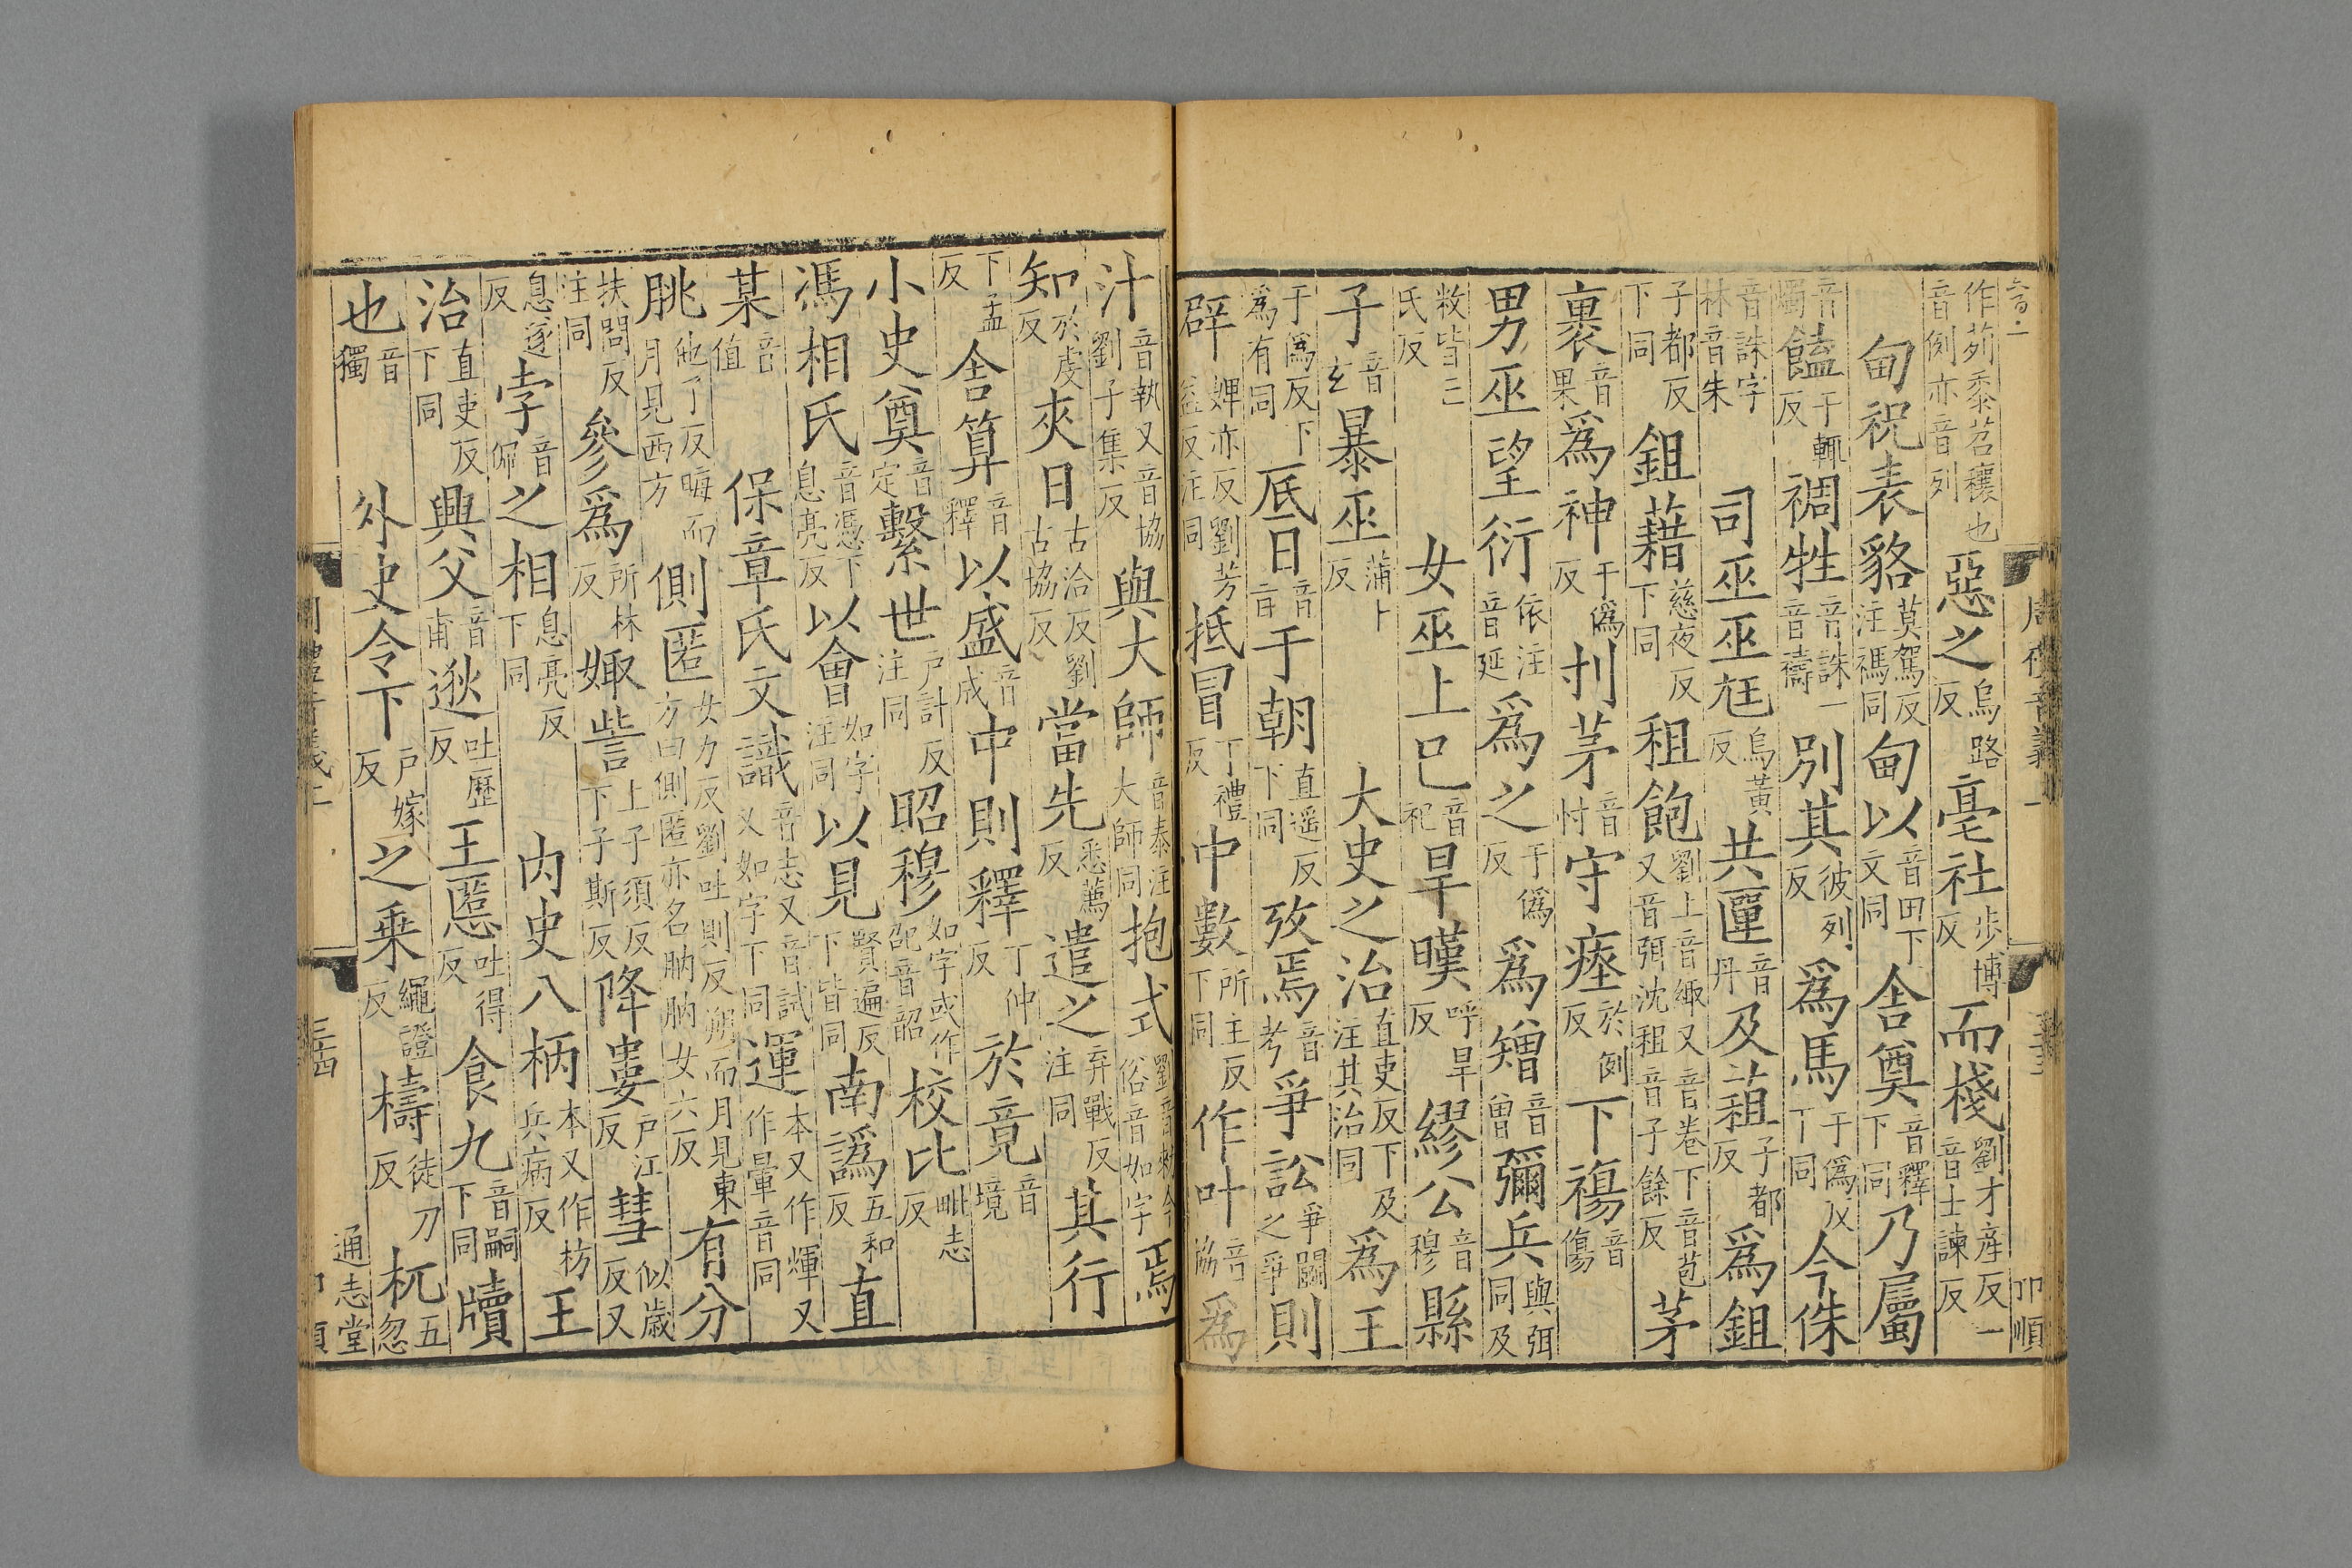 作茢黍苕穰也音例亦音列惡之烏路反亳社步博反而棧劉才産反一音士諫反
甸祝表貉莫駕反注禡同甸以音田下文同舍奠音釋下同乃屬
音燭饁于輒反禂牲音誅一音禱別其彼列反爲馬于僞反丁同今侏
音誅字林音朱司巫巫尪烏黃反共匰音丹及葅子都反爲鉏
子都反下同鉏藉慈夜反下同租飽劉上音緅又音卷下音苞又音弭沈租音子餘反茅
裹音果爲神于僞反刌茅音忖守瘞於例反下禓音傷
男巫望衍依注音延爲之于僞反爲矰音曾彌兵與弭同及
敉皆亡氏反女巫上巳音祀旱暵呼旱反繆公音穆縣
子音玄暴巫蒲卜反大史之治直吏反下及注其治同爲王
于爲反下爲有同厎日音旨于朝直遥反下同攷焉音考爭訟爭鬭之爭則
辟婢亦反劉芳益反注同抵冒丁禮反中數所主反下同作叶音協爲
汁音執又音協劉子集反與大師音泰注大師同抱式焉
知於虔反夾日古洽反劉古協反當先悉薦反遣之弃戰反注同其行
下孟反舍算音釋以盛音成中則釋丁仲反於竟音境
小史奠音定繫世户計反注同昭穆如字或作佋音韶校比毗志反
馮相氏音憑下息亮反以會如字注同以見賢遍反下皆同南譌五和反直
某音值保章氏文識音志又音試又如字下同運本又作煇又作暈音同
朓他了反晦而月見西方側匿女力反劉吐則反朔而月見東方曰側匿亦名朒朒女六反有分
扶問反注同參爲所林反娵訾上子須反下子斯反降婁户江反彗似歲反又
息遂反孛音佩之相息亮反下同内史八柄本又作枋兵病反王
治直吏反下同興父音甫逖吐歷反王慝吐得反食九音嗣下同牘
音獨也外史令下户嫁反之乗繩證反檮徒刀反杌五忽
通志堂